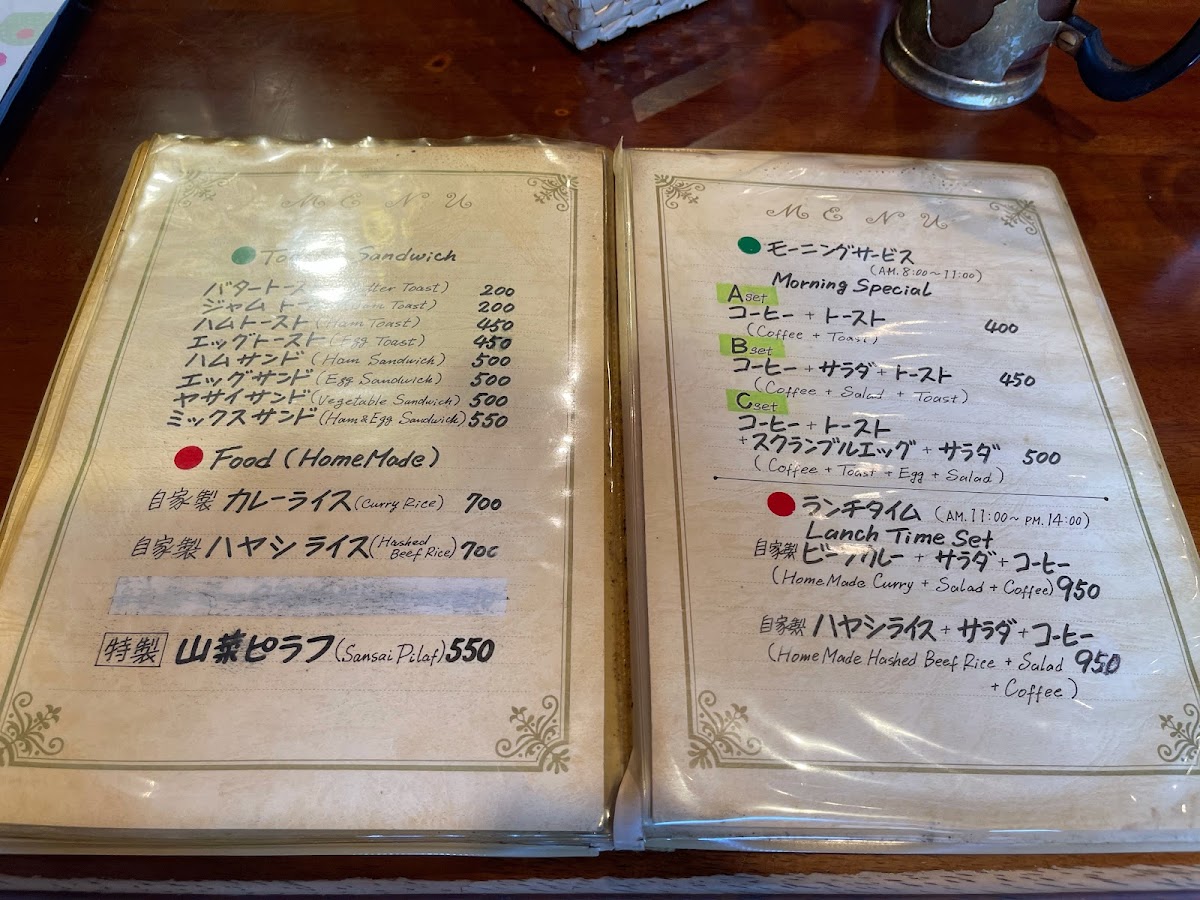 MENU
Sandwich
バタートース Butter Toast) 200
ジャム ト Toast) 200
ハムトースト (Ham Toast) 450
エッグトースト (Egg Toast) 450
ハムサンド (Ham Sandwich) 500
エッグサンド (Egg Sandwich) 500
ヤサイサンド (Vegetable Sandwich) 500
ミックスサンド (Ham&Egg Sandwich) 550
Food (HomeMade)
自家製 カレーライス (Curry Rice) 700
自家製 ハヤシライス (Hashed Beef Rice) 700
特製 山菜ピラフ (Sansai Pilaf) 550
MENU
モーニングサービス
(AM. 8:00~11:00)
Morning Special
A set
コーヒー + トースト 400
(Coffee + Toast)
B set
コーヒー + サラダ + トースト 450
(Coffee + Salad + Toast)
C set
コーヒー + トースト
+ スクランブルエッグ + サラダ 500
(Coffee + Toast + Egg + Salad)
ランチタイム (AM. 11:00~ PM. 14:00)
Lanch Time Set
自家製 ビーフカレー + サラダ + コーヒー
(HomeMade Curry + Salad + Coffee) 950
自家製 ハヤシライス + サラダ + コーヒー
(HomeMade Hashed Beef Rice + Salad 950
+ Coffee)